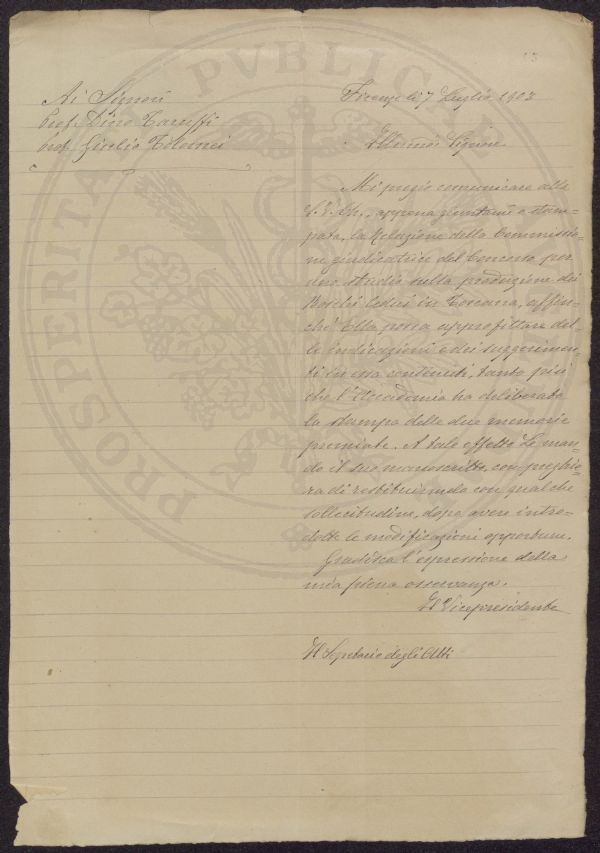 Ai Signori
Prof. Dino Taruffi
Prof. Giulio
Firenze li 7 Luglio 1902
Illmo Signore
Mi pregio comunicare alla
S.V. Ill., appena stam-
pata, la Relazione della Commissio-
ne giudicatrice del Concorso per
uno studio sulla produzione dei
Boschi Cedui in Toscana, affin-
chè Ella possa approfittare del-
le indicazioni e dei suggerimen-
ti in essa contenuti, tanto più
che l'Accademia ha deliberato
la stampa delle due memorie
premiate. A tale effetto Le man-
do il suo manoscritto, con preghie-
ra di restituirmelo con qualche
sollecitudine, dopo avere intro-
dotte le modificazioni opportune.
Gradisca l'espressione della
mia piena osservanza.
Il Vicepresidente
Il Segretario degli Atti
PROSPERITATI PVBLICAE